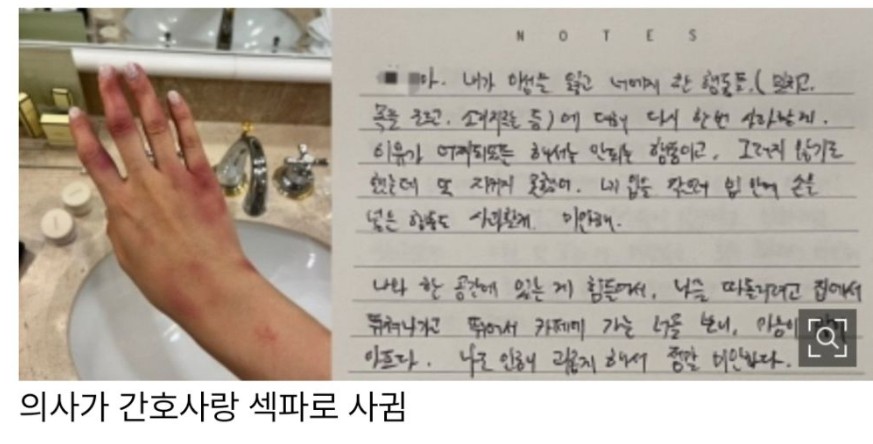 NOTES
아. 내가 이성을 잃고 너에게 한 행동들. (밀치고,
목을 조르고, 소리지르는 등)에 대해 다시 한번 사과할게.
이유가 어찌되었든 해서는 안되는 행동이고, 그러지 않기로
했는데 또 지키지 못했어. 네 입을 막으려 입 안에 손을
넣은 행동도 사과할게. 미안해.
나와 한 공간에 있는 게 힘들어서, 나를 따돌리려고 집에서
뛰쳐나가고 뛰어서 카페에 가는 너를 보니, 마음이
아프다. 나로 인해 괴롭게 해서 정말 미안하다.
의사가 간호사랑 섹파로 사귐